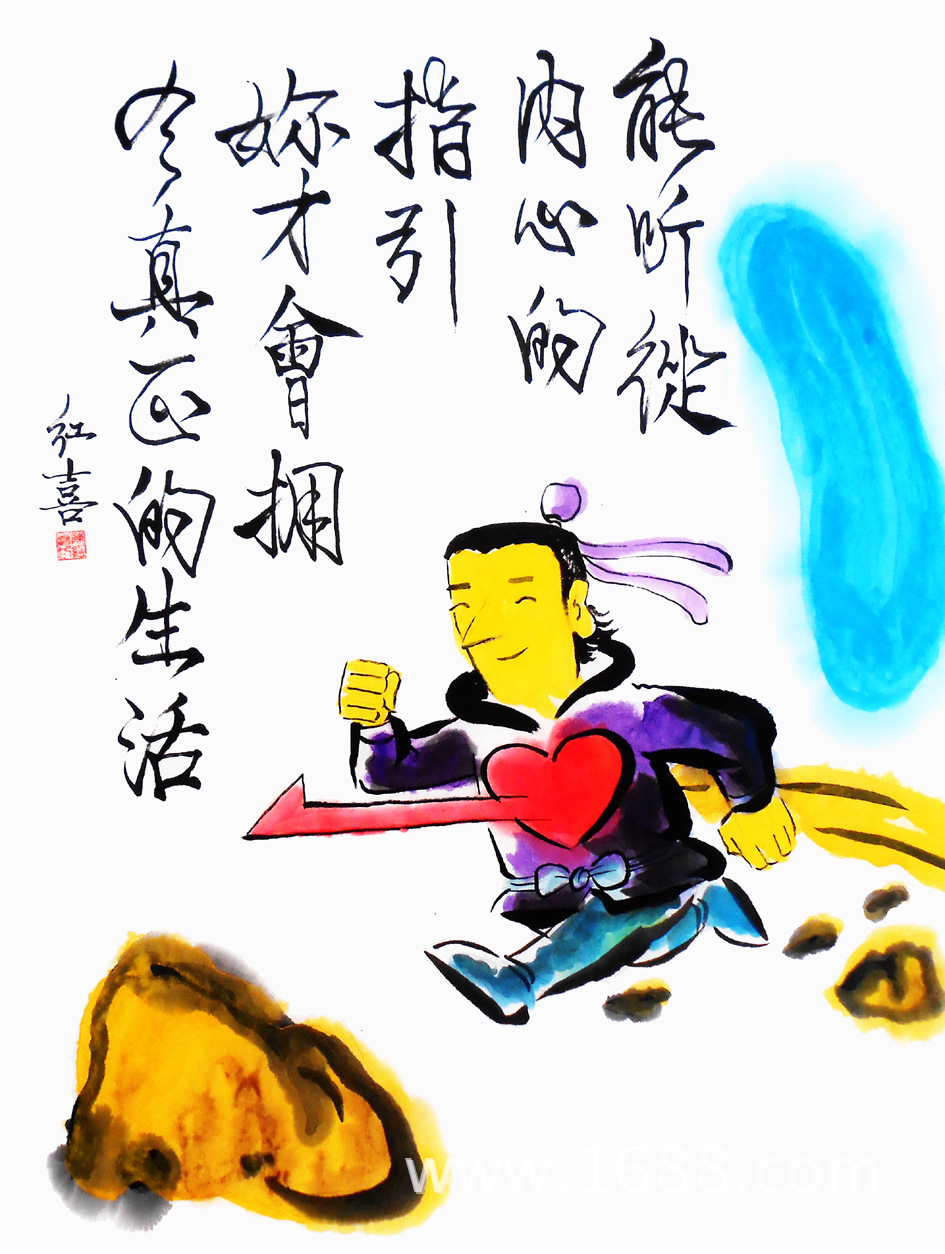 能听從
内心的
指引
妳才會拥
有真正的生活
红喜
www.1688.com